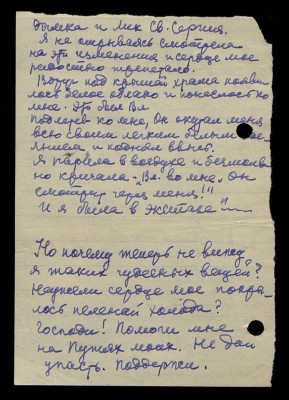 дымка и Лик Св. Сергия.
Я не отрываясь смотрела
на эти изменения и сердце мое
радостно трепетало.
Вдруг под крышей храма появи
лось белое облако и понеслось ко
мне. Это был Вл.
Подлетев ко мне, он окутал меня
всю своим легким белым
янием и поднял ввысь.
Я парила в воздухе и безмолв
но кричала - "Вл. во мне. Он
смотрит через меня!"
И я была в экстазе"
Но почему теперь не вижу
я таких чудесных вещей?
Неужели сердце мое покры-
лось пеленой холода?
Господи! Помоги мне
на Путях моих. Не дай
упасть. Поддержи.